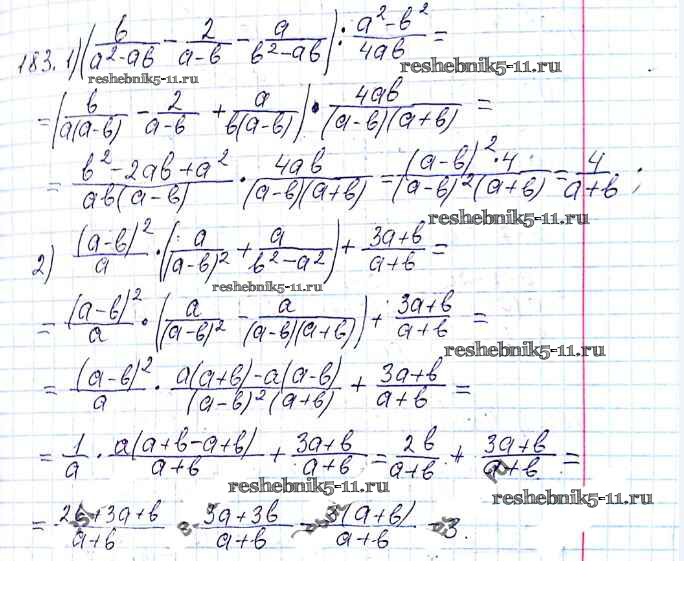 183. 1) (b/(a²-ab) - 2/(a-b) - a/(b²-ab)) : (a²-b²)/(4ab) =
reshebnik5-11.ru
reshebnik5-11.ru
= (b/(a(a-b)) - 2/(a-b) + a/(b(a-b))) · 4ab/((a-b)(a+b)) =
= (b²-2ab+a²)/(ab(a-b)) · 4ab/((a-b)(a+b)) = ((a-b)²·4)/((a-b)²(a+b)) = 4/(a+b) ;
reshebnik5-11.ru
2) (a-b)²/a · (a/(a-b)² + a/(b²-a²)) + (3a+b)/(a+b) =
reshebnik5-11.ru
= (a-b)²/a · (a/(a-b)² - a/((a-b)(a+b))) + (3a+b)/(a+b) =
reshebnik5-11.ru
= (a-b)²/a · (a(a+b)-a(a-b))/((a-b)²(a+b)) + (3a+b)/(a+b) =
= 1/a · a(a+b-a+b)/(a+b) + (3a+b)/(a+b) = 2b/(a+b) + (3a+b)/(a+b) =
reshebnik5-11.ru
reshebnik5-11.ru
= (2b+3a+b)/(a+b) = (3a+3b)/(a+b) = 3(a+b)/(a+b) = 3.